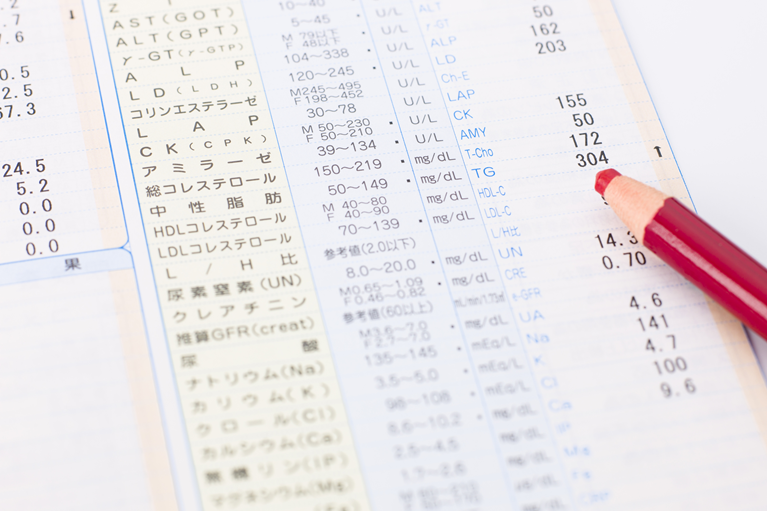 ↓
.7
7.6
0.5
2.5
67.3
24.5
5.2
0.0
0.0
0.0
果
AST(GOT)
ALT(GPT)
γ-GT(γ-GTP)
ALP
LD(LDH)
コリンエステラーゼ
LAP
CK(CPK)
アミラーゼ
総コレステロール
中性脂肪
HDLコレステロール
LDLコレステロール
L/H比
尿素窒素(UN)
クレアチニン
推算GFR(creat)
尿酸
ナトリウム(Na)
カリウム(K)
クロール(Cl)
カルシウム(Ca)
無機リン(IP)
マグネシウム(Mg)
10～40
5～45
M 79以下
F 48以下
104～338
120～245
M245～495
F198～452
30～78
M 50～230
F 50～210
39～134
150～219
50～149
M 40～80
F 40～90
70～139
参考値(2.0以下)
8.0～20.0
M0.65～1.09
F0.46～0.82
参考値(60以上)
M3.6～7.0
F2.7～7.0
135～145
3.5～5.0
98～108
8.6～10.2
2.5～4.5
U/L
U/L
U/L
U/L
U/L
U/L
U/L
U/L
mg/dL
mg/dL
mg/dL
mg/dL
mg/dL
mg/dL
mg/dL
mEq/L
mEq/L
mEq/L
mg/dL
mg/dL
ALT
γ-GT
ALP
LD
Ch-E
LAP
CK
AMY
T-Cho
TG
HDL-C
LDL-C
L/H比
UN
CRE
e-GFR
UA
Na
K
Cl
Ca
IP
Mg
Fe
50
162
203
155
50
172
304 ↑
14.3
0.70
4.6
141
4.7
100
9.6